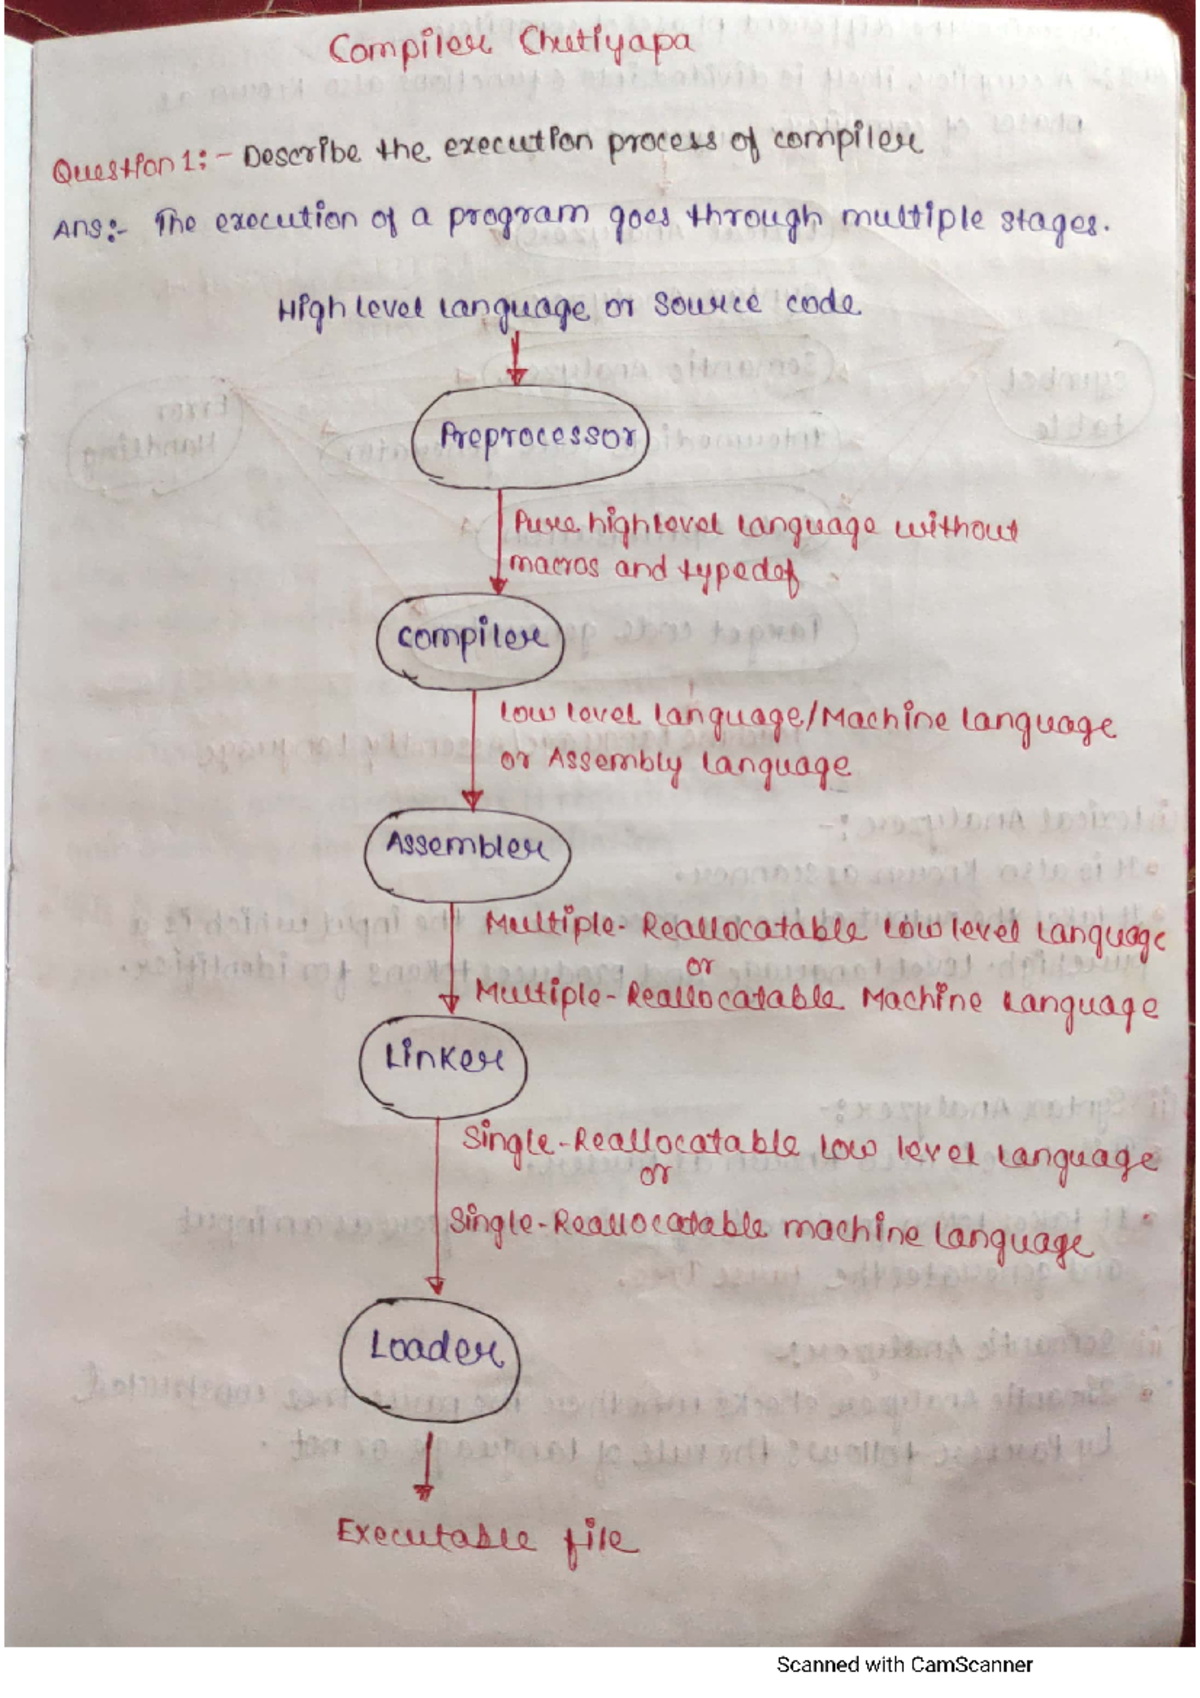 Compiler Chutiyapa
Question 1:- Describe the execution process of compiler
Ans:- The execution of a program goes through multiple stages.
High level language or Source code
Preprocessor
Pure high level language without
macros and typedef
Compiler
Low level language/Machine language
or Assembly language
Assembler
Multiple-Reallocatable Low level language
or
Multiple-Reallocatable Machine Language
Linker
Single-Reallocatable Low level language
or
Single-Reallocatable machine language
Loader
Executable file
Scanned with CamScanner